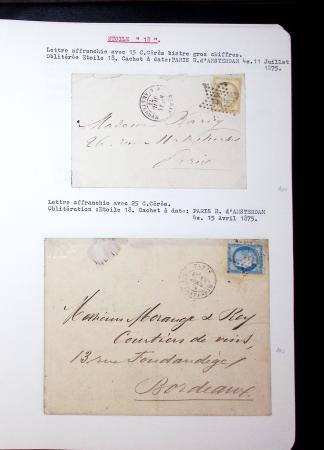 ETOILE " 18 "
Lettre affranchie avec 15 C.Cérès bistre gros chiffres.
Oblitérée Etoile 18, Cachet à date:PARIS R.d'AMSTERDAM 4e.11 Juillet
1875.
Madame
26, rue
Paris
Lettre affranchie avec 25 C.Cérès.
Oblitération :Etoile 18. Cachet à date: PARIS R. d'AMSTERDAM
4e. 15 Avril 1875.
Messieurs Morange & Rey
Courtiers de vins,
13 rue Fondaudège
Bordeaux.